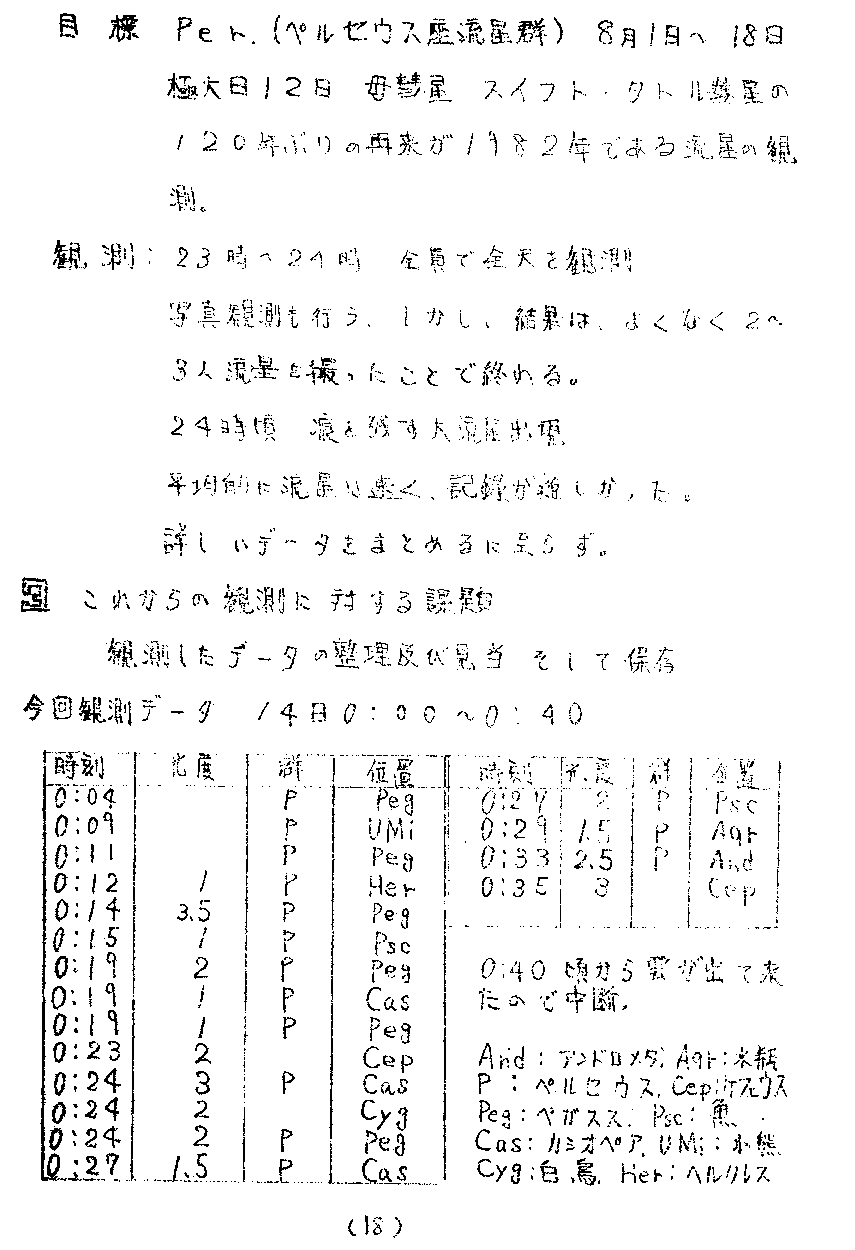 目標 Per.(ペルセウス座流星群) 8月1日〜18日
極大日12日 母彗星 スイフト・タトル彗星の
120年ぶりの再来が1982年である流星の観
測。
観測: 23時〜24時 全員で全天を観測
写真観測も行う、しかし、結果は、よくなく2〜
3人流星を撮ったことで終れる。
24時頃 痕を残す大流星出現
平均的に流星は速く、記録が難しかった。
詳しいデータをまとめるに至らず。
3 これからの観測に対する課題
観測したデータの整理及び見当 そして保存
今回観測データ 14日0:00〜0:40
時刻 光度 群 位置
0:04 P Peg
0:09 P UMi
0:11 P Peg
0:12 1 P Her
0:14 3.5 P Peg
0:15 1 P Psc
0:19 2 P Peg
0:19 1 P Cas
0:19 1 P Peg
0:23 2 Cep
0:24 3 P Cas
0:24 2 Cyg
0:24 2 P Peg
0:27 1.5 P Cas
時刻 光度 群 位置
0:27 2 P Psc
0:29 1.5 P Aqr
0:33 2.5 P And
0:35 3 Cep
0:40 頃から雲が出て来
たので中断。
And: アンドロメダ, Aqr:水瓶
P : ペルセウス, Cep:ケフェウス
Peg:ペガスス, Psc:魚
Cas:カシオペア, UMi:小熊
Cyg:白鳥, Her:ヘルクレス
(18)